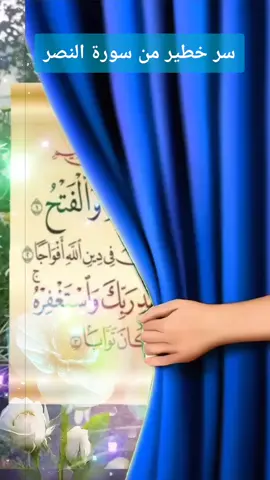 سر خطير من سورة النصر
وَالْفَتْحُ
فِي دِينِ اللَّهِ أَفْوَاجًا
رَبِّكَ وَاسْتَغْفِرْهُ
تَوَّابًا